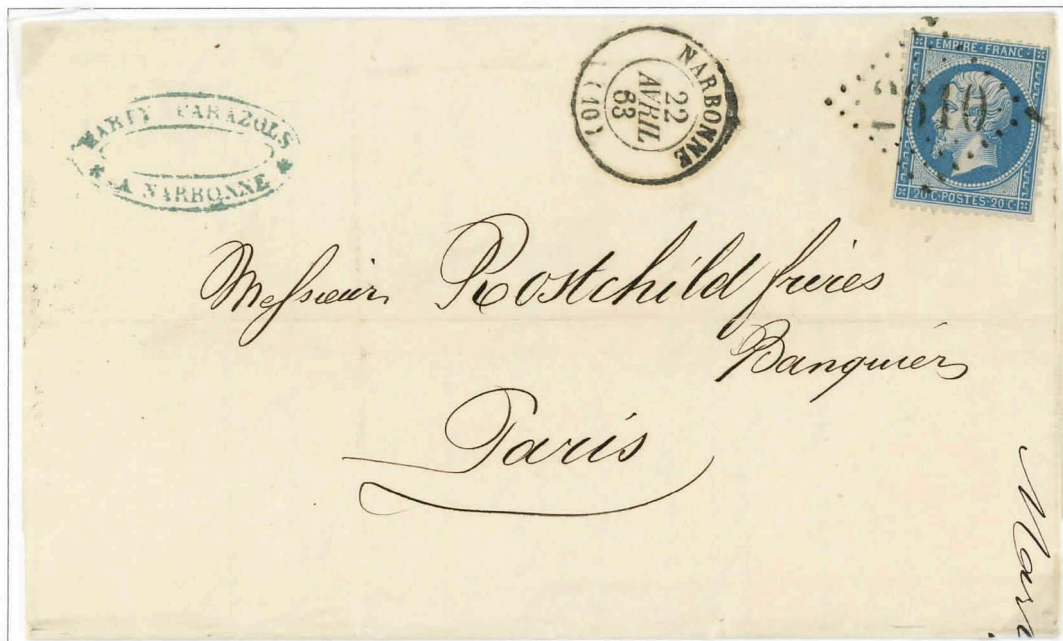 MARTY PARAZOLS
A NARBONNE
NARBONNE
22
AVRIL
63
(10)
EMPIRE · FRANC
2610
20 C · POSTES · 20 C
Messieurs Rostchild frères
Banquiers
Paris